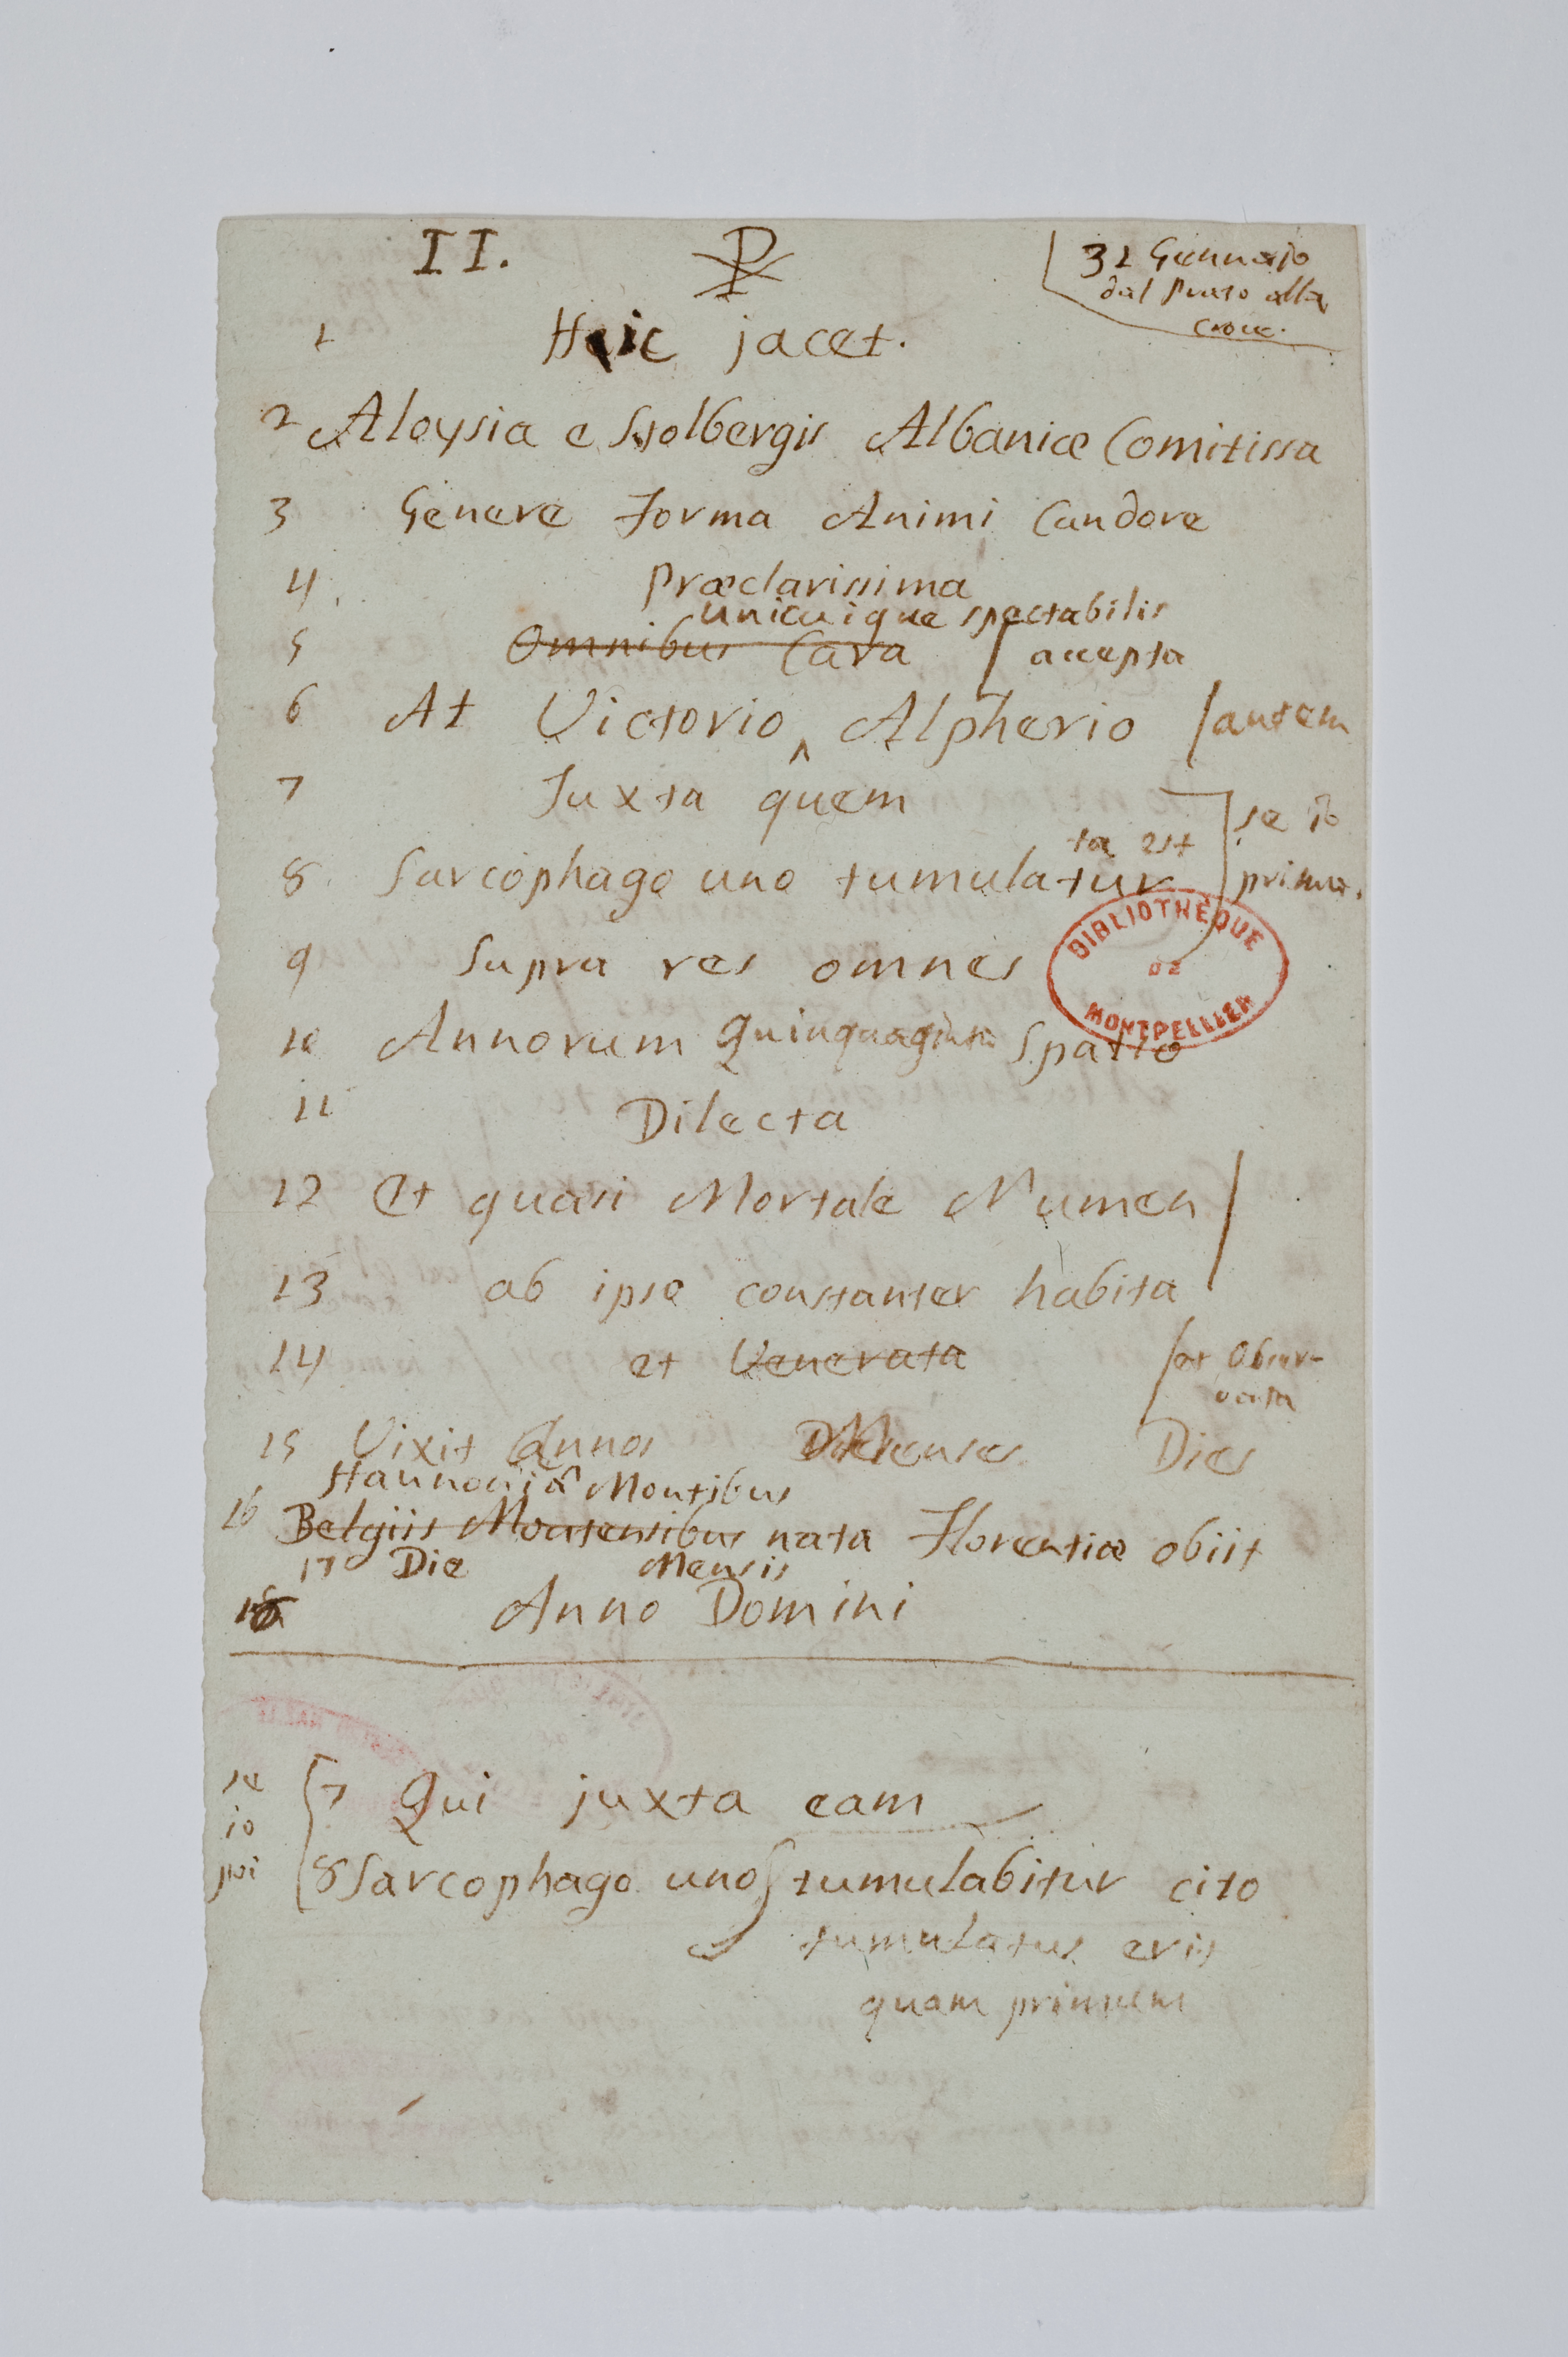 II. ☧
31 Gennajo
dal Prato alla
Croce.
1 Heic jacet.
2 Aloysia e Stolbergis Albaniæ Comitissa
3 Genere Forma Animi Candore
4. Præclarissima
unicuique spectabilis
5 Omnibus Cara / accepta
6 At Victorio ^ Alpherio / autem
7 Juxta quem
se io
ta est
8. Sarcophago uno tumulatur primo.
9 Supra res omnes
BIBLIOTHÈQUE
DE
MONTPELLIER
10 Annorum Quinquaginta Spatio
11 Dilecta
12 Et quasi Mortale Numen
13 ab ipso constanter habita
14 et Venerata / et Obser-
vata
15 Vixit Annos Menses Dies
Hannoniæ Montibus
16 Belgiis Montensibus nata Florentiæ obiit
17 Die Mensis
18 Anno Domini
se
io
pri
7 Qui juxta eam
8 Sarcophago uno tumulabitur cito
tumulatus erit
quam primum